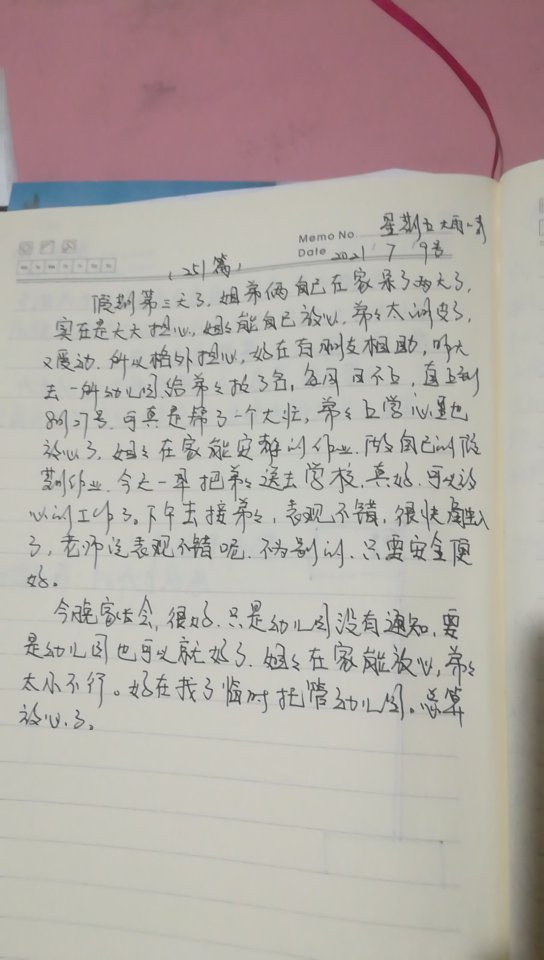 星期五 大雨
Memo No.
Date 2021 7 9号
(251篇)
假期第三天了，姐弟俩自己在家呆了两天了，
实在是太大担心，姐姐能自己放心，弟弟太调皮了，
又爱动，所以格外担心，好在有朋友相助，昨天
去一所幼儿园给弟弟报了名，每周日不上，直上到
8月27号，可真是帮了一个大忙，弟弟上学心里也
放心了，姐姐在家能安静的作业，做自己的假
期作业，今天一早把弟弟送去学校，真好，可以放
心的工作了。下午去接弟弟，表现不错，很快适应
了，老师说表现不错呢，不为别的，只要安全便
好。
今晚家长会，很好，只是幼儿园没有通知，要
是幼儿园也可以就好了，姐姐在家能放心，弟弟
太小不行。好在找了临时托管幼儿园。总算
放心了。